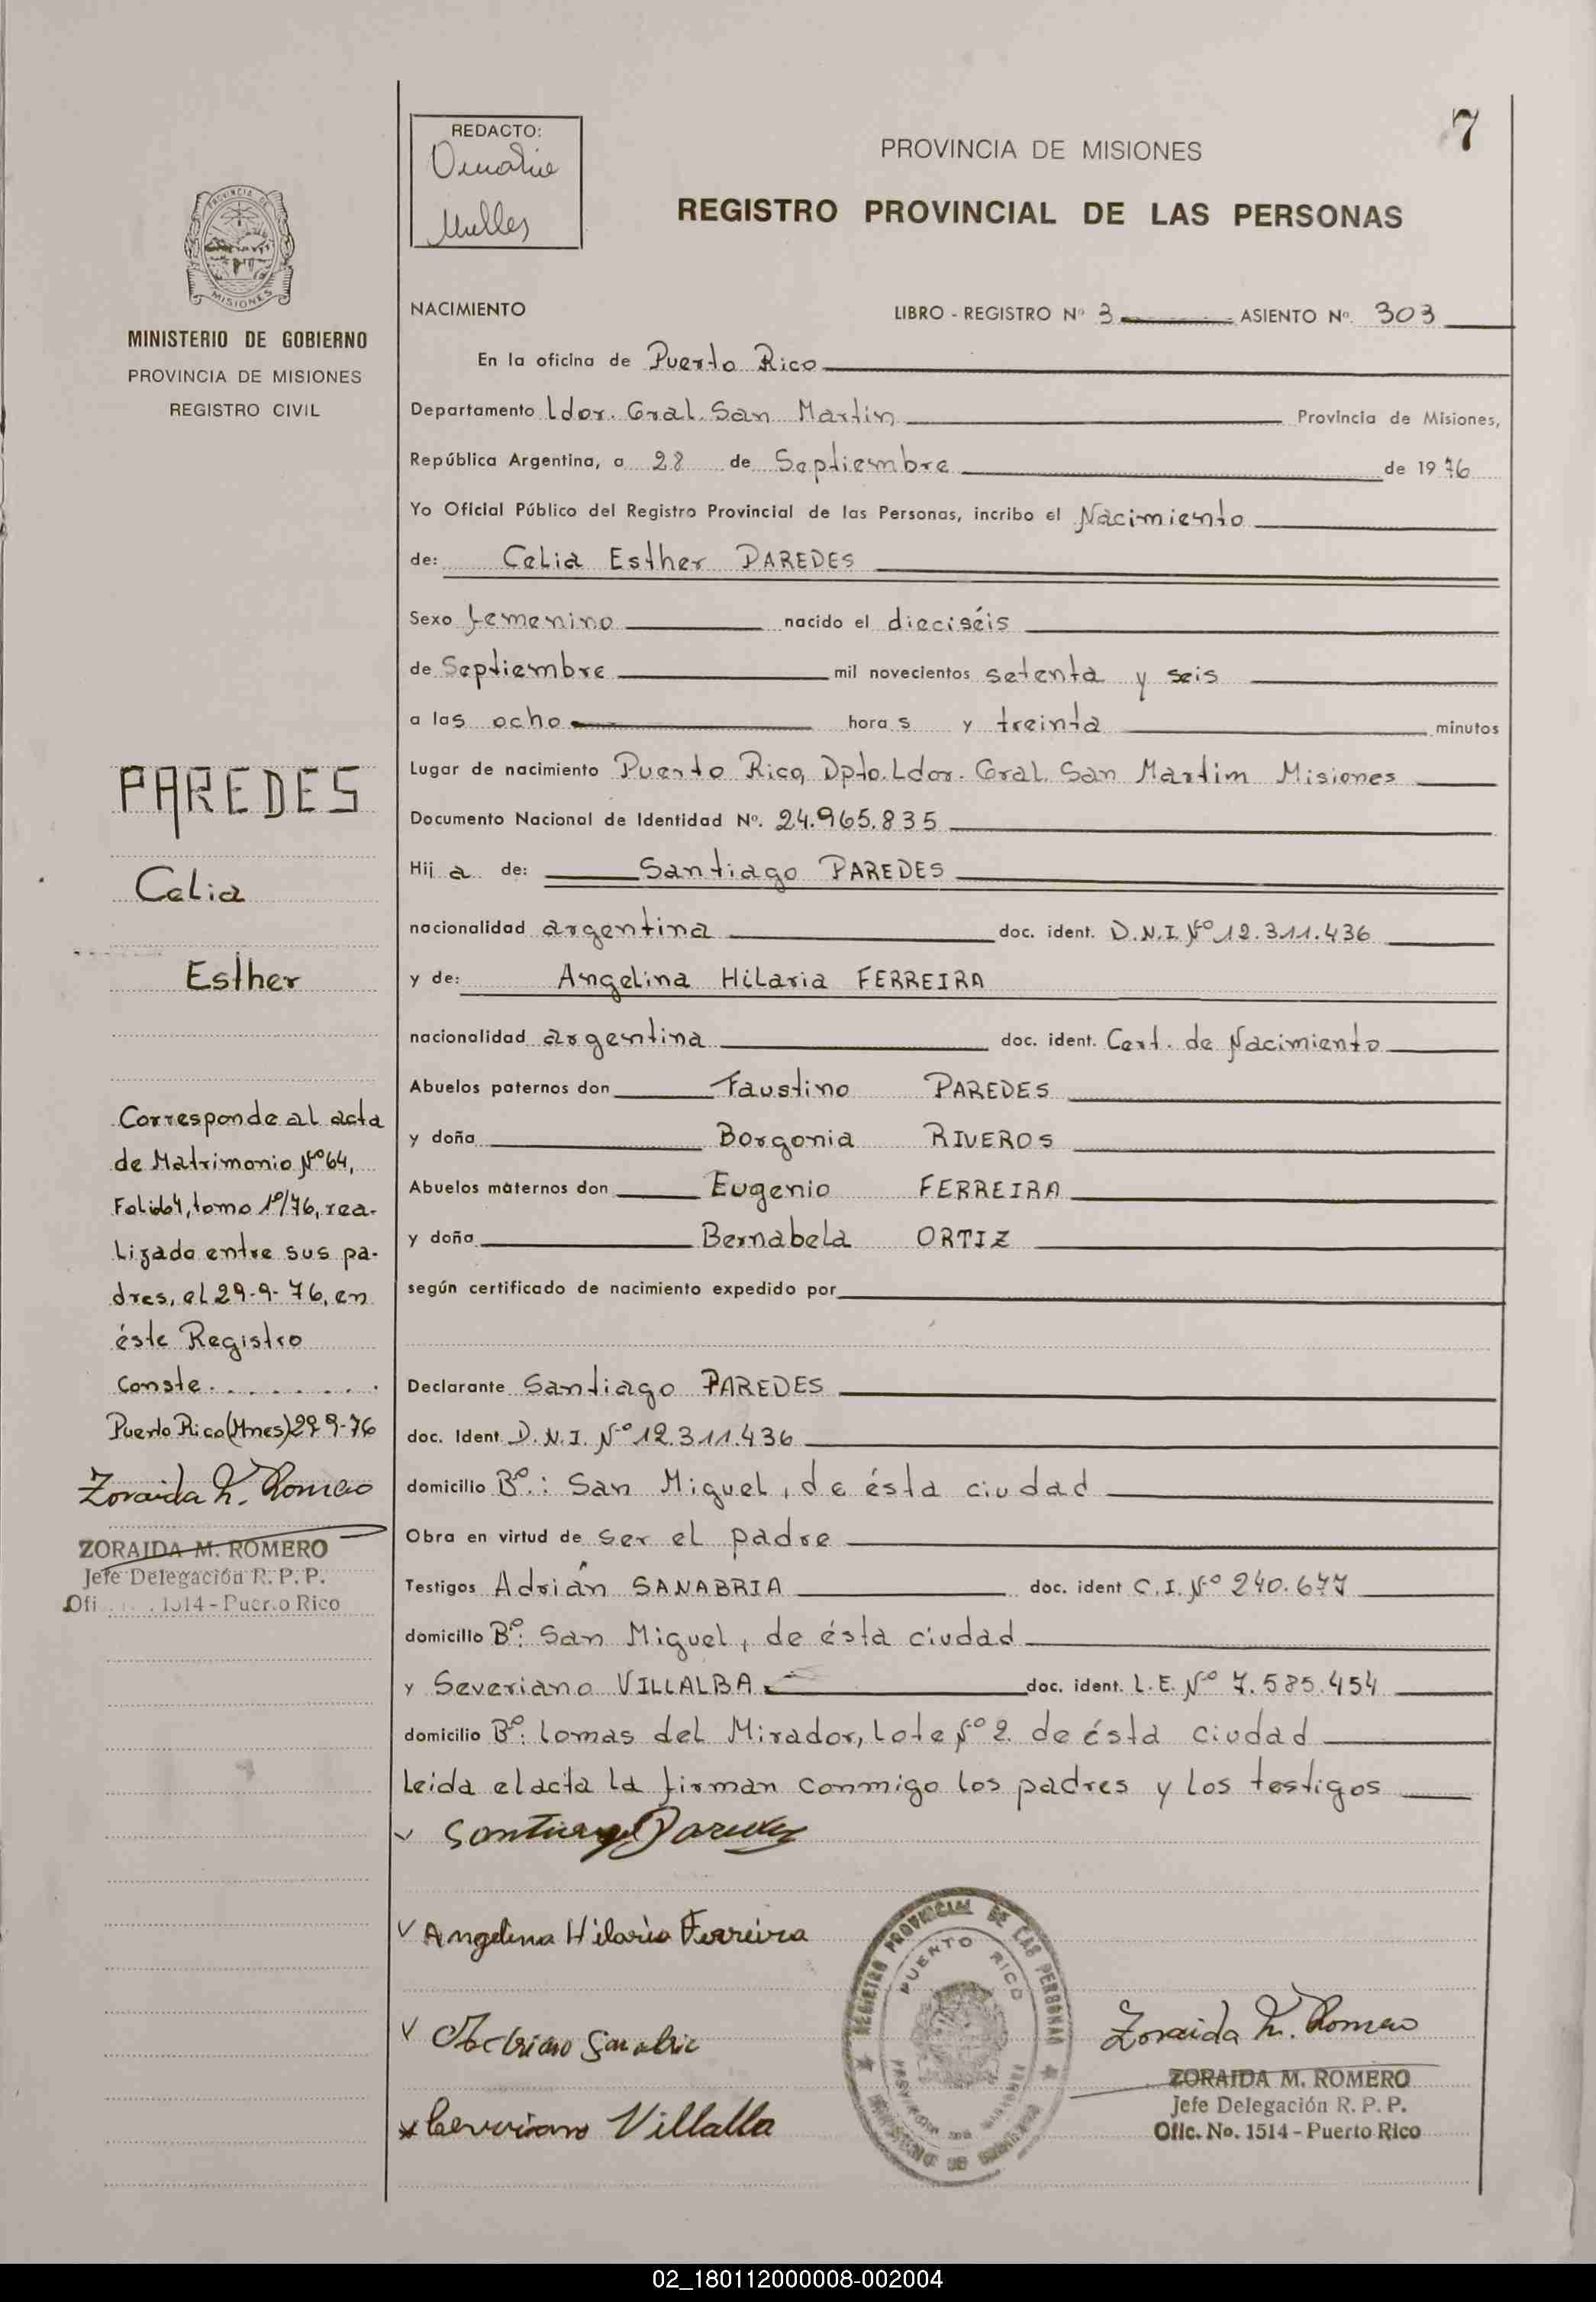 7
REDACTO:
PROVINCIA DE MISIONES
REGISTRO PROVINCIAL DE LAS PERSONAS
MISIONES
MINISTERIO DE GOBIERNO
PROVINCIA DE MISIONES
REGISTRO CIVIL
PAREDES
Celia
Esther
Corresponde al acta
de Matrimonio Nº64,
Folio64, tomo 1º/76, rea-
lizado entre sus pa-
dres, el 29-9-76, en
éste Registro
Conste.........
Puerto Rico(Mnes)29-9-76
Zoraida M. Romero
ZORAIDA M. ROMERO
Jefe Delegación R. P. P.
Ofi 1514 - Puerto Rico
NACIMIENTO LIBRO - REGISTRO Nº 3 ASIENTO Nº. 303
En la oficina de Puerto Rico
Departamento Ldor. Gral. San Martin Provincia de Misiones,
República Argentina, a 28 de Septiembre de 1976
Yo Oficial Público del Registro Provincial de las Personas, incribo el Nacimiento
de: Celia Esther PAREDES
Sexo femenino nacido el dieciséis
de Septiembre mil novecientos setenta y seis
a las ocho horas y treinta minutos
Lugar de nacimiento Puerto Rico, Dpto. Ldor. Gral. San Martim Misiones
Documento Nacional de Identidad Nº. 24.965.835
Hij a de: Santiago PAREDES
nacionalidad argentina doc. ident. D.N.I. Nº 12.311.436
y de: Angelina Hilaria FERREIRA
nacionalidad argentina doc. ident. Cert. de Nacimiento
Abuelos paternos don Faustino PAREDES
y doña Borgonia RIVEROS
Abuelos maternos don Eugenio FERREIRA
y doña Bernabela ORTIZ
según certificado de nacimiento expedido por
Declarante Santiago PAREDES
doc. Ident D.N.I. Nº 12.311.436
domicilio Bº.: San Miguel, de ésta ciudad
Obra en virtud de ser el padre
Testigos Adrián SANABRIA doc. ident C.I. Nº 240.677
domicilio Bº: San Miguel, de ésta ciudad
y Severiano VILLALBA doc. ident. L.E. Nº 7.585.454
domicilio Bº: Lomas del Mirador, Lote Nº 2 de ésta ciudad
Leida el acta la firman conmigo los padres y los testigos
Santiago Paredes
Angelina Hilaria Ferreira
REGISTRO PROVINCIAL DE LAS PERSONAS
PUERTO RICO
Zoraida M. Romero
ZORAIDA M. ROMERO
Jefe Delegación R. P. P.
Ofic. No. 1514 - Puerto Rico
Villalba
02_180112000008-002004